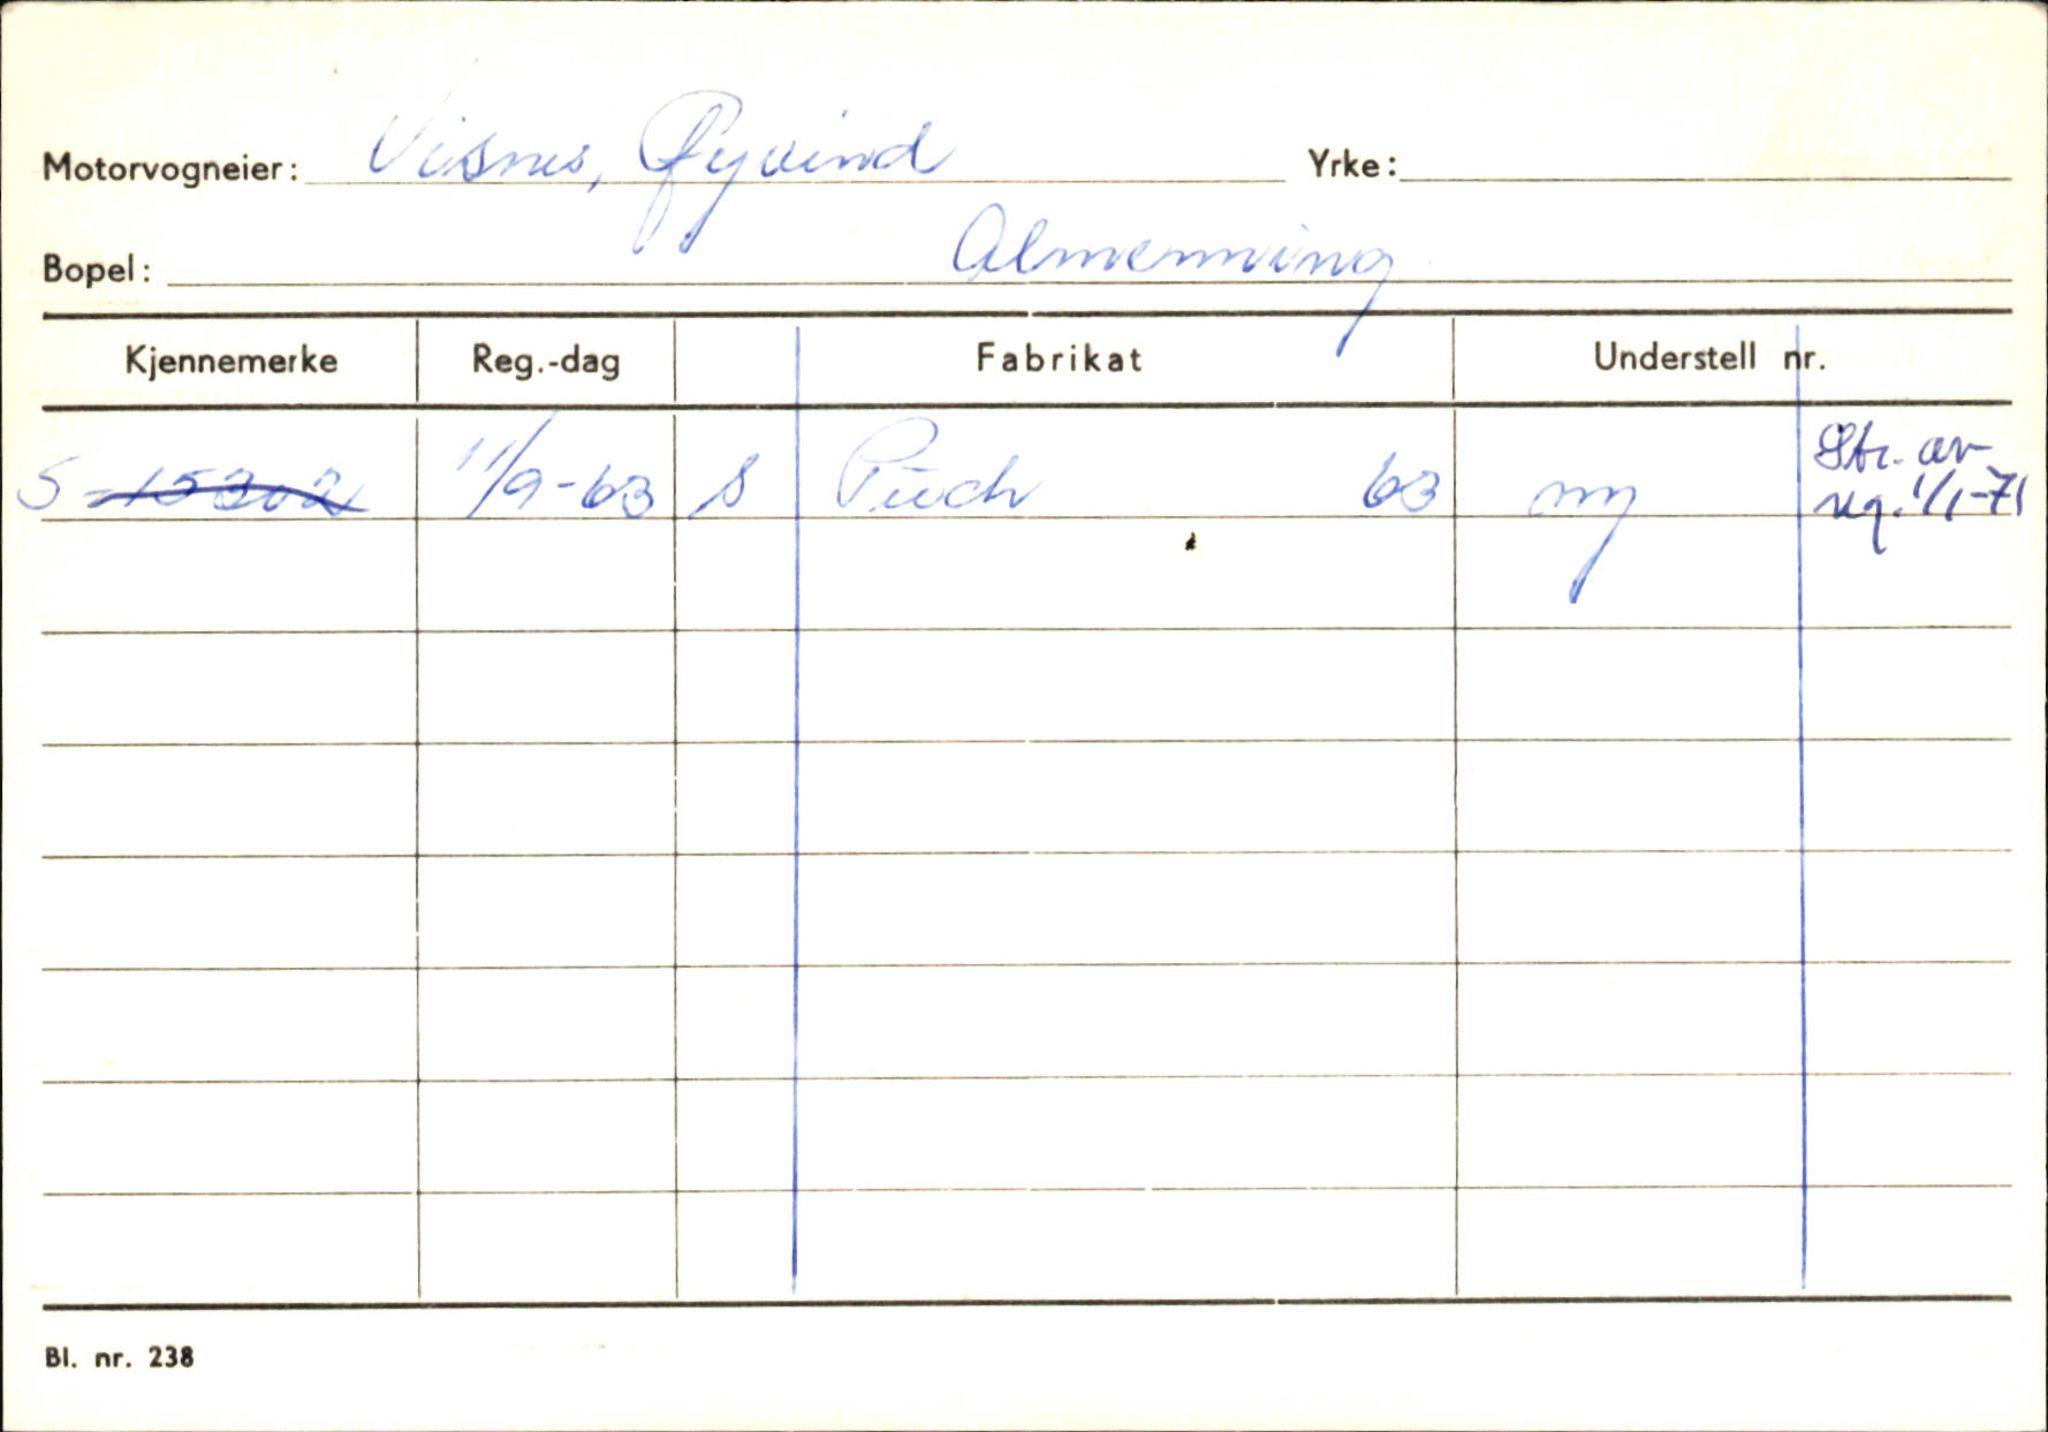 Motorvogneier: Visnes, Øyvind Yrke:
Bopel: Almenning
Kjennemerke Reg.-dag Fabrikat Understell nr.
S-15302 11/9-63 S Püch 63 ny Str. av
reg. 1/1-71
Bl. nr. 238